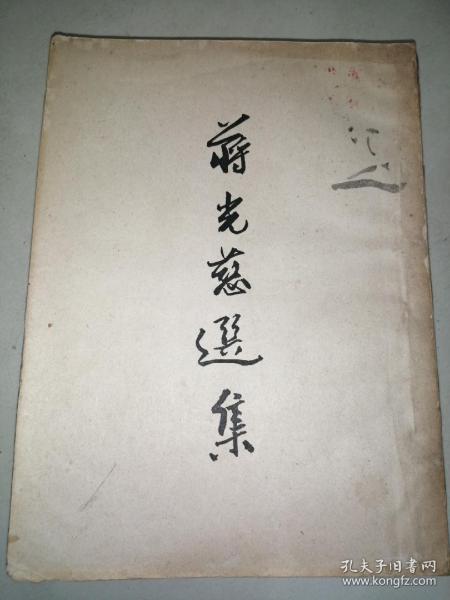 蔣光慈選集
孔夫子旧书网
www.kongfz.com